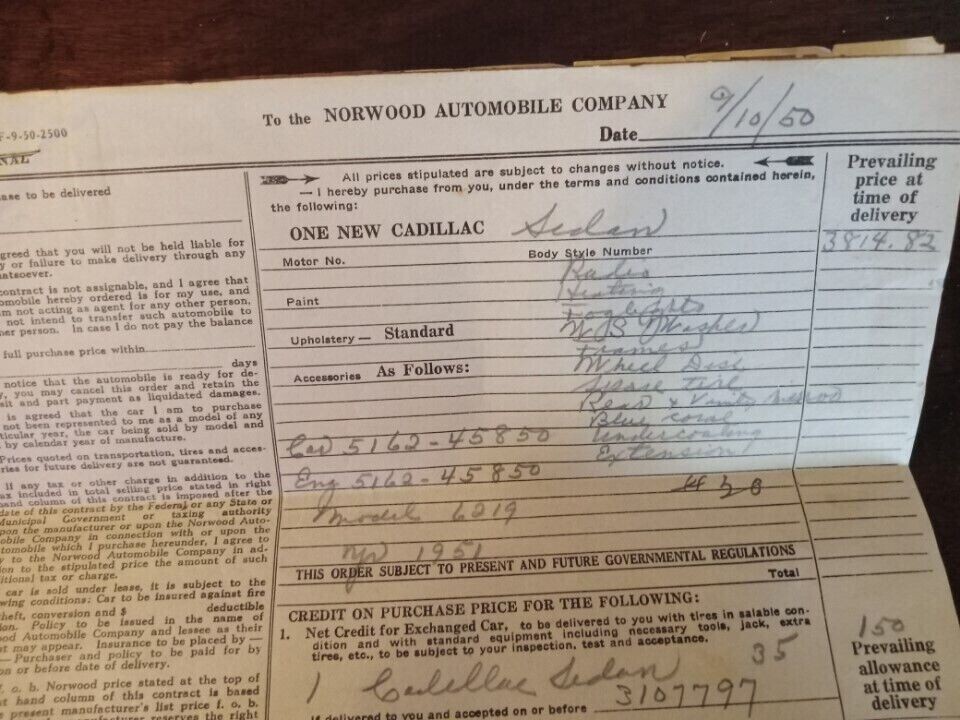 F-9-50-2500
NAL
To the NORWOOD AUTOMOBILE COMPANY
Date 9/10/50
ase to be delivered
greed that you will not be held liable for
y or failure to make delivery through any
hatsoever.
contract is not assignable, and I agree that
omobile hereby ordered is for my use, and
am not acting as agent for any other person,
not intend to transfer such automobile to
her person. In case I do not pay the balance
full purchase price within
days
notice that the automobile is ready for de-
y, you may cancel this order and retain the
sit and part payment as liquidated damages.
is agreed that the car I am to purchase
not been represented to me as a model of any
ticular year, the car being sold by model and
by calendar year of manufacture.
Prices quoted on transportation, tires and acces-
ries for future delivery are not guaranteed.
If any tax or other charge in addition to the
ax included in total selling price stated in right
hand column of this contract is imposed after the
date of this contract by the Federal or any State or
Municipal Government or taxing authority
upon the manufacturer or upon the Norwood Auto-
obile Company in connection with or upon the
tomobile which I purchase hereunder, I agree to
y to the Norwood Automobile Company in ad-
on to the stipulated price the amount of such
itional tax or charge.
car is sold under lease, it is subject to the
wing conditions: Car to be insured against fire
heft, conversion end $ deductible
on. Policy to be issued in the name of
ood Automobile Company and lessee as their
t may appear. Insurance to be placed by —
— Purchaser and policy to be paid for by
on or before date of delivery.
f. o. b. Norwood price stated at the top of
t hand column of this contract is based
present manufacturer's list price f. o. b.
manufacturer reserves the right
All prices stipulated are subject to changes without notice.
— I hereby purchase from you, under the terms and conditions contained herein,
the following:
ONE NEW CADILLAC Sedan
Motor No. Body Style Number
Radio
Paint
Foglights
Upholstery — Standard
W S Washer
Frames
Accessories As Follows:
Wheel Disc
Spare tire
Rear & Vanity Mirror
Blue coral
Car 5162-45850 Undercoating
Extension
Eng 5162-45850
Model 6219
Yr 1951
THIS ORDER SUBJECT TO PRESENT AND FUTURE GOVERNMENTAL REGULATIONS
Total
CREDIT ON PURCHASE PRICE FOR THE FOLLOWING:
1. Net Credit for Exchanged Car, to be delivered to you with tires in salable con-
dition and with standard equipment including necessary tools, jack, extra
tires, etc., to be subject to your inspection, test and acceptance.
35
1 Cadillac Sedan
3107797
If delivered to you and accepted on or before
Prevailing
price at
time of
delivery
3814.82
150
Prevailing
allowance
at time of
delivery